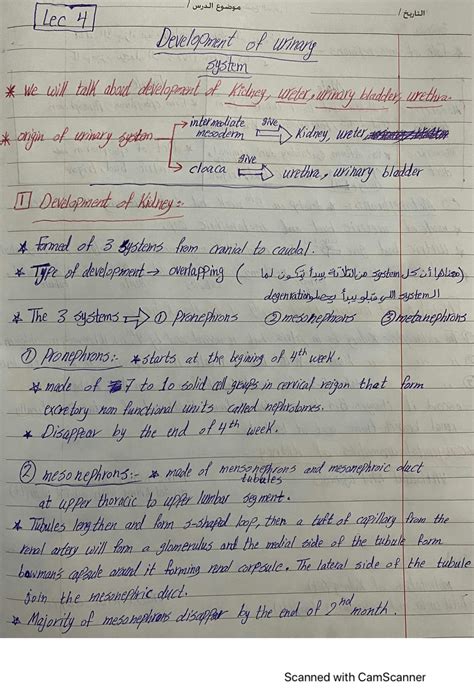 موضوع الدرس /
التاريخ /
Lec 4
Development of urinary
system
* we will talk about development of Kidney, ureter, urinary bladder, urethra.
* origin of urinary system → intermediate mesoderm give ⇒ Kidney, ureter
→ cloaca give ⇒ urethra, urinary bladder
1 Development of Kidney:-
* formed of 3 systems from cranial to caudal.
* Type of development → overlapping ( معناها أن كل system من الثلاثة يبدأ يتكون لما
ال system اللي قبله يبدأ يحصله degenration)
* The 3 systems ⇒ ① pronephrons ② mesonephrons ③ metanephrons
① Pronephrons:- * starts at the begining of 4th week.
* made of 7 to 10 solid cell groups in cervical reigon that form
excretory non functional units called nephrotomes.
* Disappear by the end of 4th week.
② mesonephrons:- * made of mensonephrons tubules and mesonephroic duct
at upper thoracic to upper lumbar segment.
* Tubules lengthen and form s-shaped loop, then a tuft of capillary from the
renal artery will form a glomerulus and the medial side of the tubule form
bowman's capsule around it forming renal corpsule. The lateral side of the tubule
join the mesonephric duct.
* Majority of mesonephrons disappear by the end of 2nd month.
Scanned with CamScanner